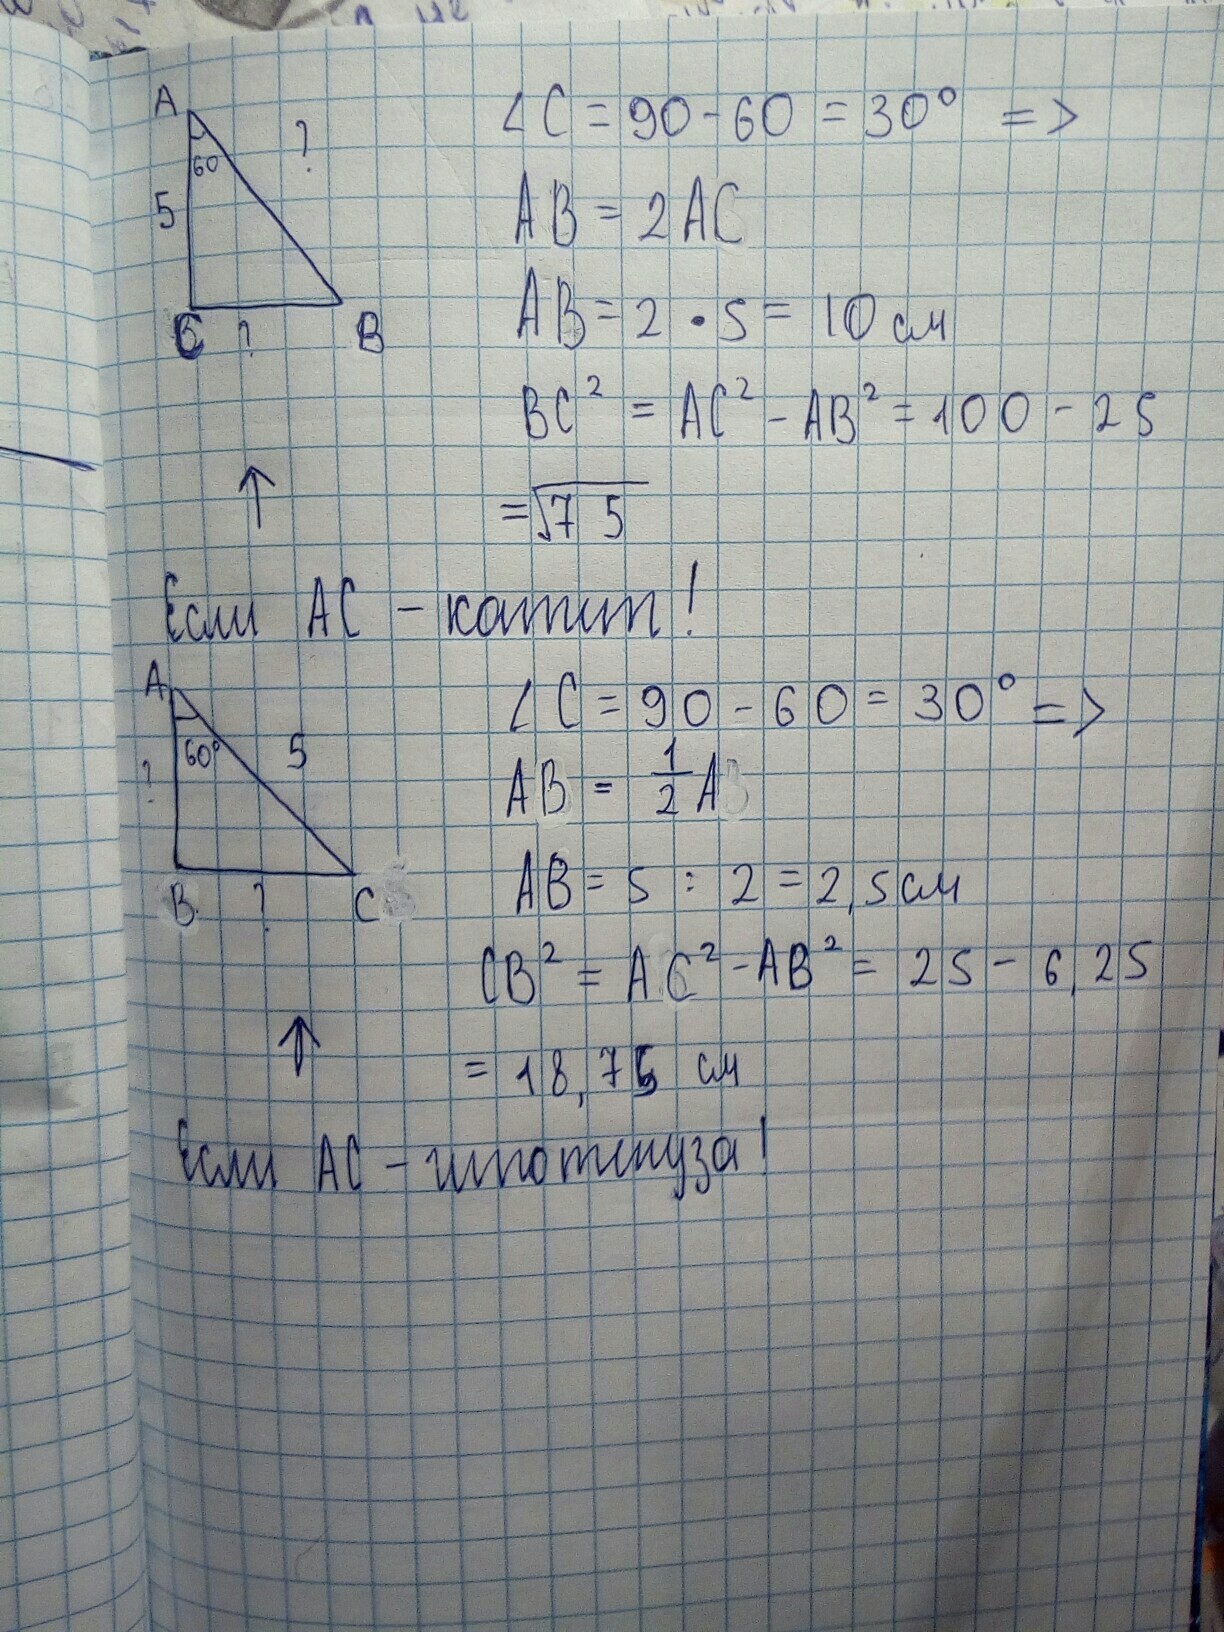 A
?
60
5
C ? B
∠C = 90 - 60 = 30° =>
AB = 2AC
AB = 2 • 5 = 10 см
BC² = AC² - AB² = 100 - 25
= √75
Если AC - катит!
A
60° 5
?
B ? C
∠C = 90 - 60 = 30° =>
AB = 1/2 A
AB = 5 : 2 = 2,5 см
CB² = AC² - AB² = 25 - 6,25
= 18,75 см
Если AC - гипотинуза!